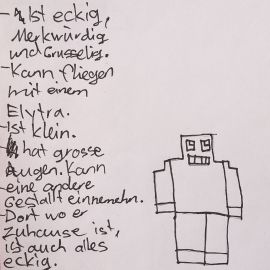 - Ist eckig,
Merkwürdig
und Grusselig.
- Kann fliegen
mit einem
Elytra.
- Ist klein.
- hat grosse
Augen. Kann
eine andere
Gestallt einnemehn.
- Dort wo er
zuhause ist,
ist auch alles
eckig.